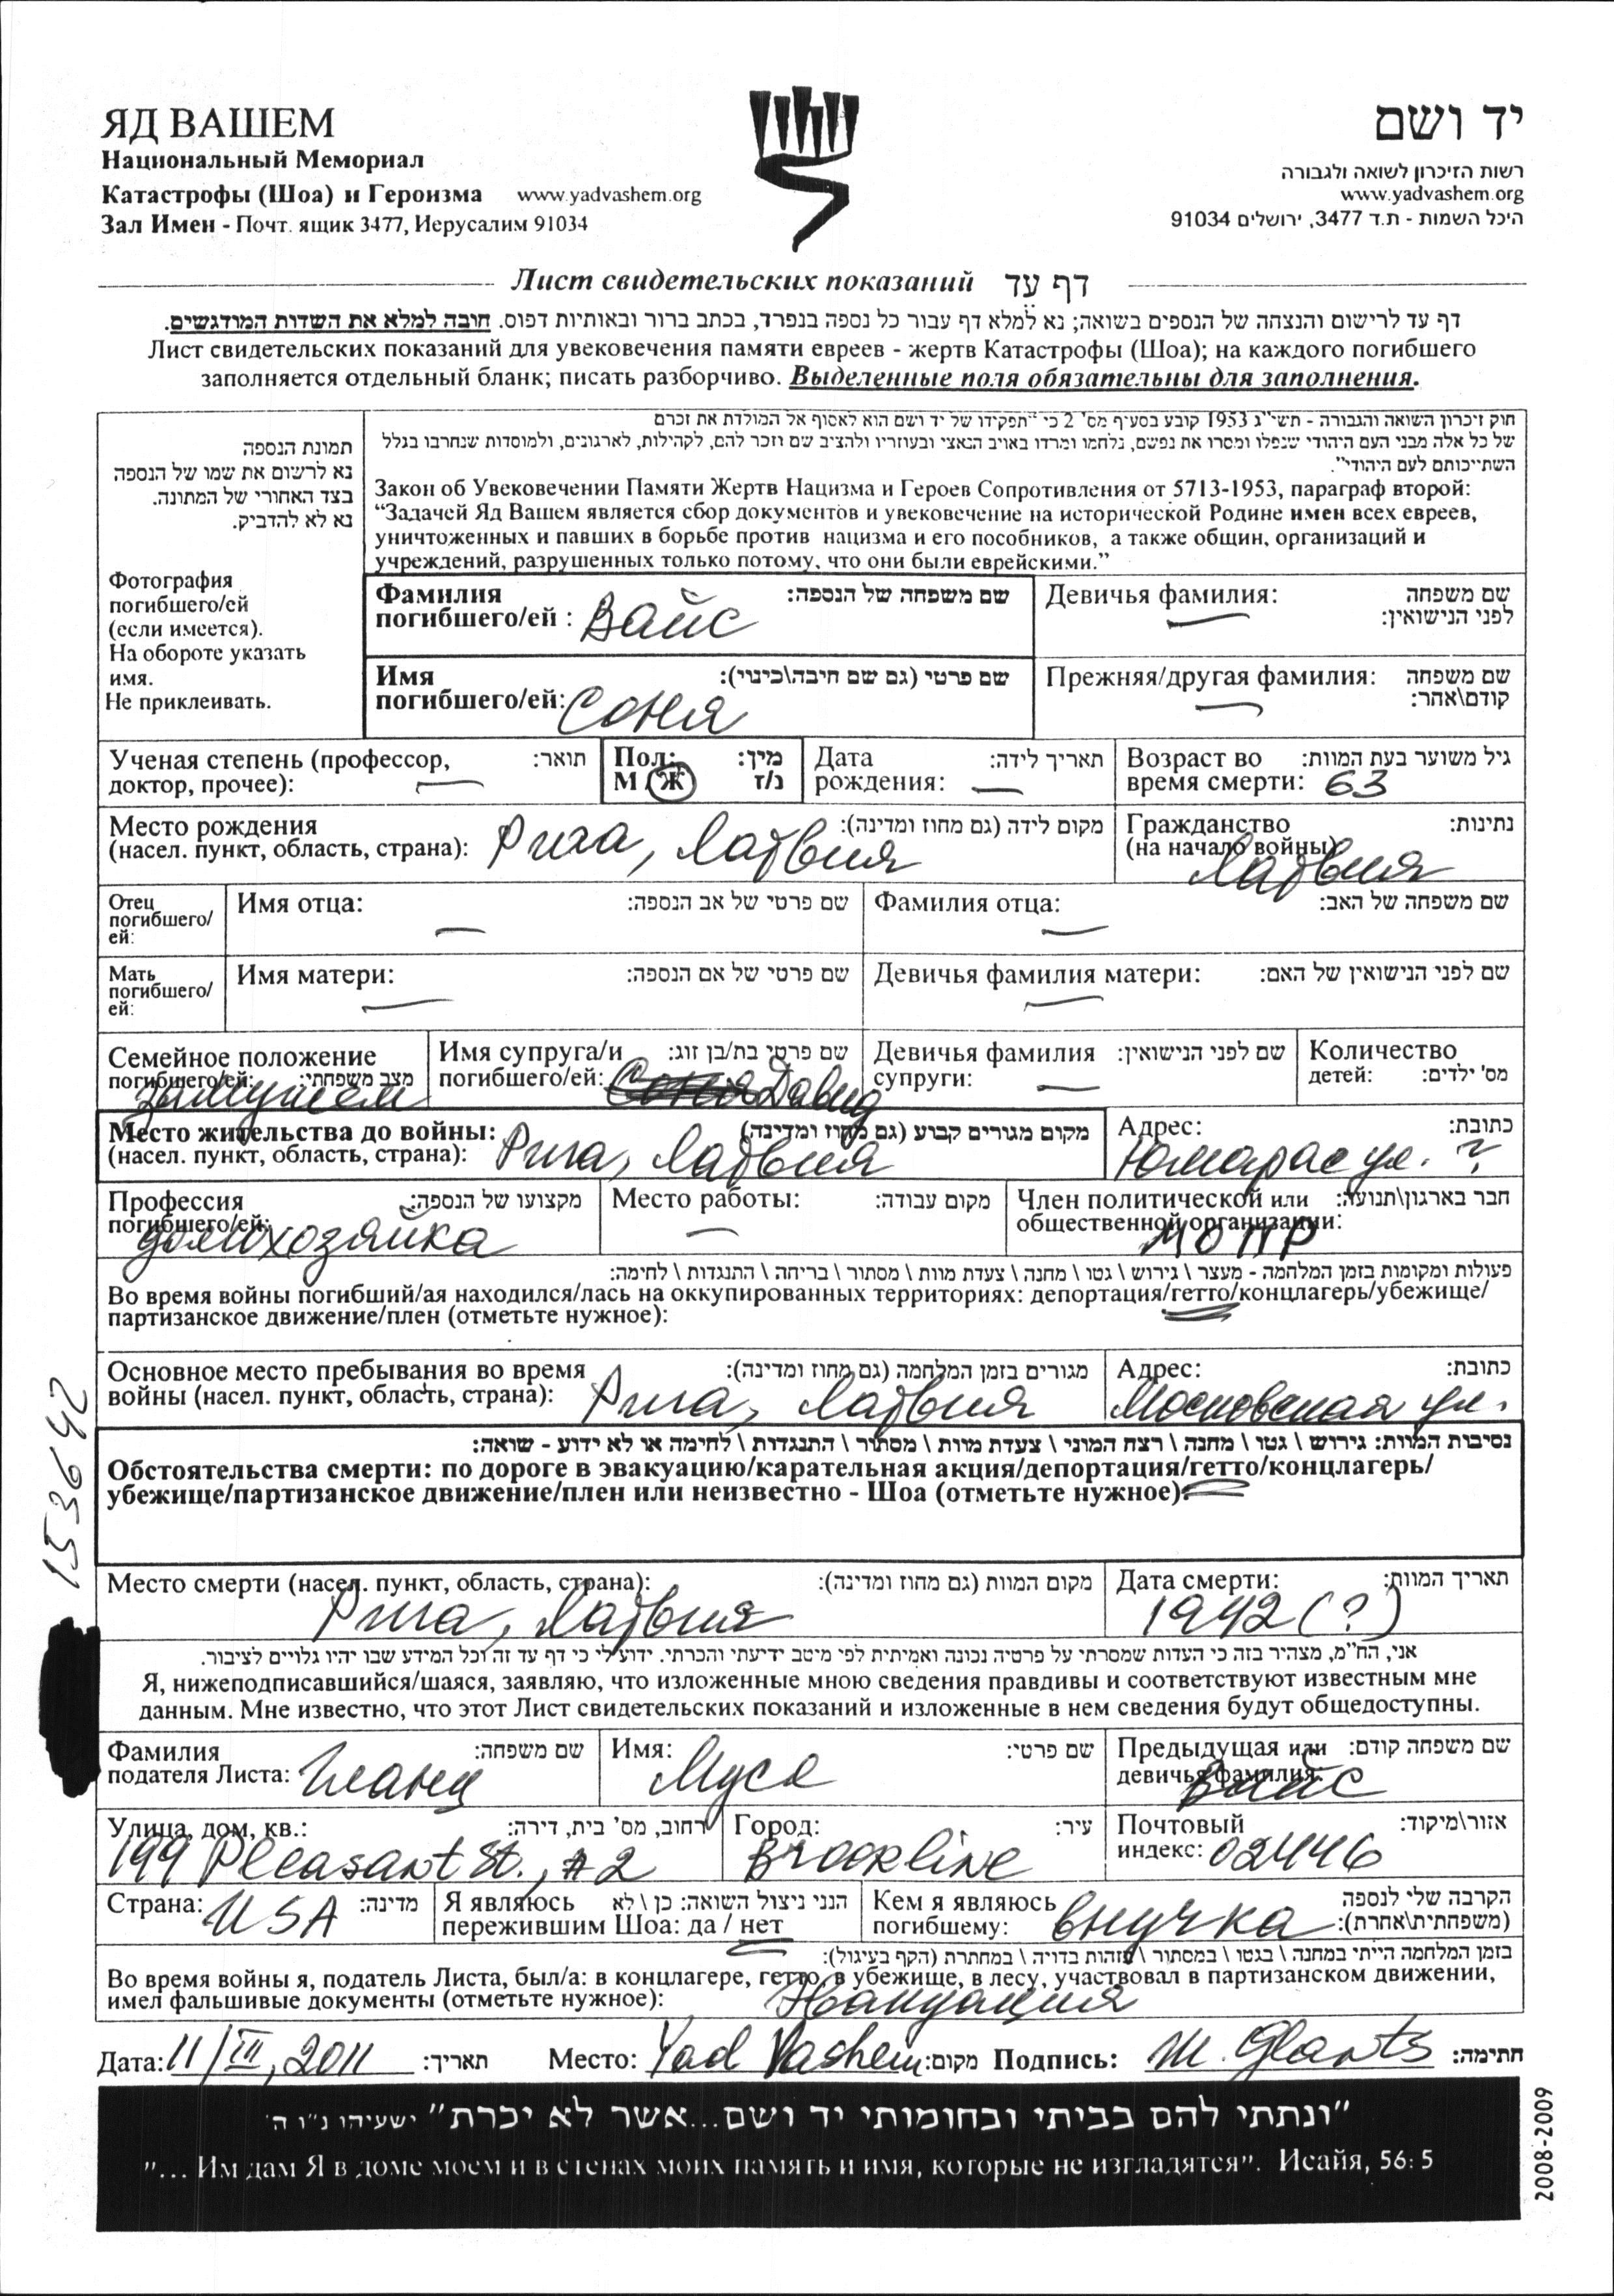 ЯД ВАШЕМ
Национальный Мемориал
Катастрофы (Шоа) и Героизма www.yadvashem.org
Зал Имен - Почт. ящик 3477, Иерусалим 91034
יד ושם
רשות הזיכרון לשואה ולגבורה
www.yadvashem.org
היכל השמות - ת.ד 3477, ירושלים 91034
Лист свидетельских показаний דף עד
דף עד לרישום והנצחה של הנספים בשואה; נא למלא דף עבור כל נספה בנפרד, בכתב ברור ובאותיות דפוס. חובה למלא את השדות המודגשים.
Лист свидетельских показаний для увековечения памяти евреев - жертв Катастрофы (Шоа); на каждого погибшего
заполняется отдельный бланк; писать разборчиво. Выделенные поля обязательны для заполнения.
תמונת הנספה
נא לרשום את שמו של הנספה
בצד האחורי של המתונה.
נא לא להדביק.
Фотография
погибшего/ей
(если имеется).
На обороте указать
имя.
Не приклеивать.
חוק זיכרון השואה והגבורה - תשי"ג 1953 קובע בסעיף מס' 2 כי "תפקידו של יד ושם הוא לאסוף אל המולדת את זכרם
של כל אלה מבני העם היהודי שנפלו ומסרו את נפשם, נלחמו ומרדו באויב הנאצי ובעוזריו ולהציב שם וזכר להם, לקהילות, לארגונים, ולמוסדות שנחרבו בגלל
השתייכותם לעם היהודי".
Закон об Увековечении Памяти Жертв Нацизма и Героев Сопротивления от 5713-1953, параграф второй:
“Задачей Яд Вашем является сбор документов и увековечение на исторической Родине имен всех евреев,
уничтоженных и павших в борьбе против нацизма и его пособников, а также общин, организаций и
учреждений, разрушенных только потому, что они были еврейскими.”
Фамилия שם משפחה של הנספה:
погибшего/ей : Вайс
Девичья фамилия: שם משפחה
לפני הנישואין: —
Имя שם פרטי (גם שם חיבה\כינוי):
погибшего/ей: Соня
Прежняя/другая фамилия: שם משפחה
קודם\אחר: —
Ученая степень (профессор, תואר:
доктор, прочее): —
Пол: מין:
М Ж נ/ז
Дата תאריך לידה:
рождения: —
Возраст во גיל משוער בעת המוות:
время смерти: 63
Место рождения מקום לידה (גם מחוז ומדינה):
(насел. пункт, область, страна): Рига, Латвия
Гражданство נתינות:
(на начало войны): Латвия
Отец
погибшего/
ей:
Имя отца: שם פרטי של אב הנספה: —
Фамилия отца: שם משפחה של האב: —
Мать
погибшего/
ей:
Имя матери: שם פרטי של אם הנספה: —
Девичья фамилия матери: שם לפני הנישואין של האם: —
Семейное положение
погибшего/ей: מצב משפחתי: замужем
Имя супруга/и שם פרטי בת/בן זוג:
погибшего/ей: Соня Давид
Девичья фамилия שם לפני הנישואין:
супруги: —
Количество
детей: מס' ילדים:
Место жительства до войны: מקום מגורים קבוע (גם מחוז ומדינה)
(насел. пункт, область, страна): Рига, Латвия
Адрес: כתובת:
Юмарас ул. ?
Профессия מקצועו של הנספה:
погибшего/ей: домохозяйка
Место работы: מקום עבודה: —
Член политической или חבר בארגון\תנועה:
общественной организации: МОПР
פעולות ומקומות בזמן המלחמה - מעצר \ גירוש \ גטו \ מחנה \ צעדת מוות \ מסתור \ בריחה \ התנגדות \ לחימה:
Во время войны погибший/ая находился/лась на оккупированных территориях: депортация/гетто/концлагерь/убежище/
партизанское движение/плен (отметьте нужное):
Основное место пребывания во время מגורים בזמן המלחמה (גם מחוז ומדינה):
войны (насел. пункт, область, страна): Рига, Латвия
Адрес: כתובת:
Московская ул.
נסיבות המוות: גירוש \ גטו \ מחנה \ רצח המוני \ צעדת מוות \ מסתור \ התנגדות \ לחימה או לא ידוע - שואה:
Обстоятельства смерти: по дороге в эвакуацию/карательная акция/депортация/гетто/концлагерь/
убежище/партизанское движение/плен или неизвестно - Шоа (отметьте нужное):
Место смерти (насел. пункт, область, страна): מקום המוות (גם מחוז ומדינה):
Рига, Латвия
Дата смерти: תאריך המוות:
1942 (?)
אני, הח"מ, מצהיר בזה כי העדות שמסרתי על פרטיה נכונה ואמיתית לפי מיטב ידיעתי והכרתי. ידוע לי כי דף עד זה וכל המידע שבו יהיו גלויים לציבור.
Я, нижеподписавшийся/шаяся, заявляю, что изложенные мною сведения правдивы и соответствуют известным мне
данным. Мне известно, что этот Лист свидетельских показаний и изложенные в нем сведения будут общедоступны.
Фамилия שם משפחה:
подателя Листа: Гланц
Имя: שם פרטי:
Муся
Предыдущая или שם משפחה קודם:
девичья фамилия: Вайс
Улица, дом, кв.: רחוב, מס' בית, דירה:
199 Pleasant St., #2
Город: עיר:
Brookline
Почтовый אזור\מיקוד:
индекс: 02446
Страна: מדינה: USA
Я являюсь הנני ניצול השואה: כן \ לא
пережившим Шоа: да / нет
Кем я являюсь הקרבה שלי לנספה
погибшему: (משפחתית\אחרת): внучка
בזמן המלחמה הייתי במחנה \ בגטו \ במסתור \ בזהות בדויה \ במחתרת (הקף בעיגול):
Во время войны я, податель Листа, был/а: в концлагере, гетто, в убежище, в лесу, участвовал в партизанском движении,
имел фальшивые документы (отметьте нужное): Эвакуация
Дата: 11/III, 2011 תאריך: Место: Yad Vashem מקום: Подпись: M. Glants חתימה:
"ונתתי להם בביתי ובחומותי יד ושם...אשר לא יכרת" ישעיהו נ"ו ה'
"... Им дам Я в доме моем и в стенах моих память и имя, которые не изгладятся". Исайя, 56: 5
153642
2008-2009